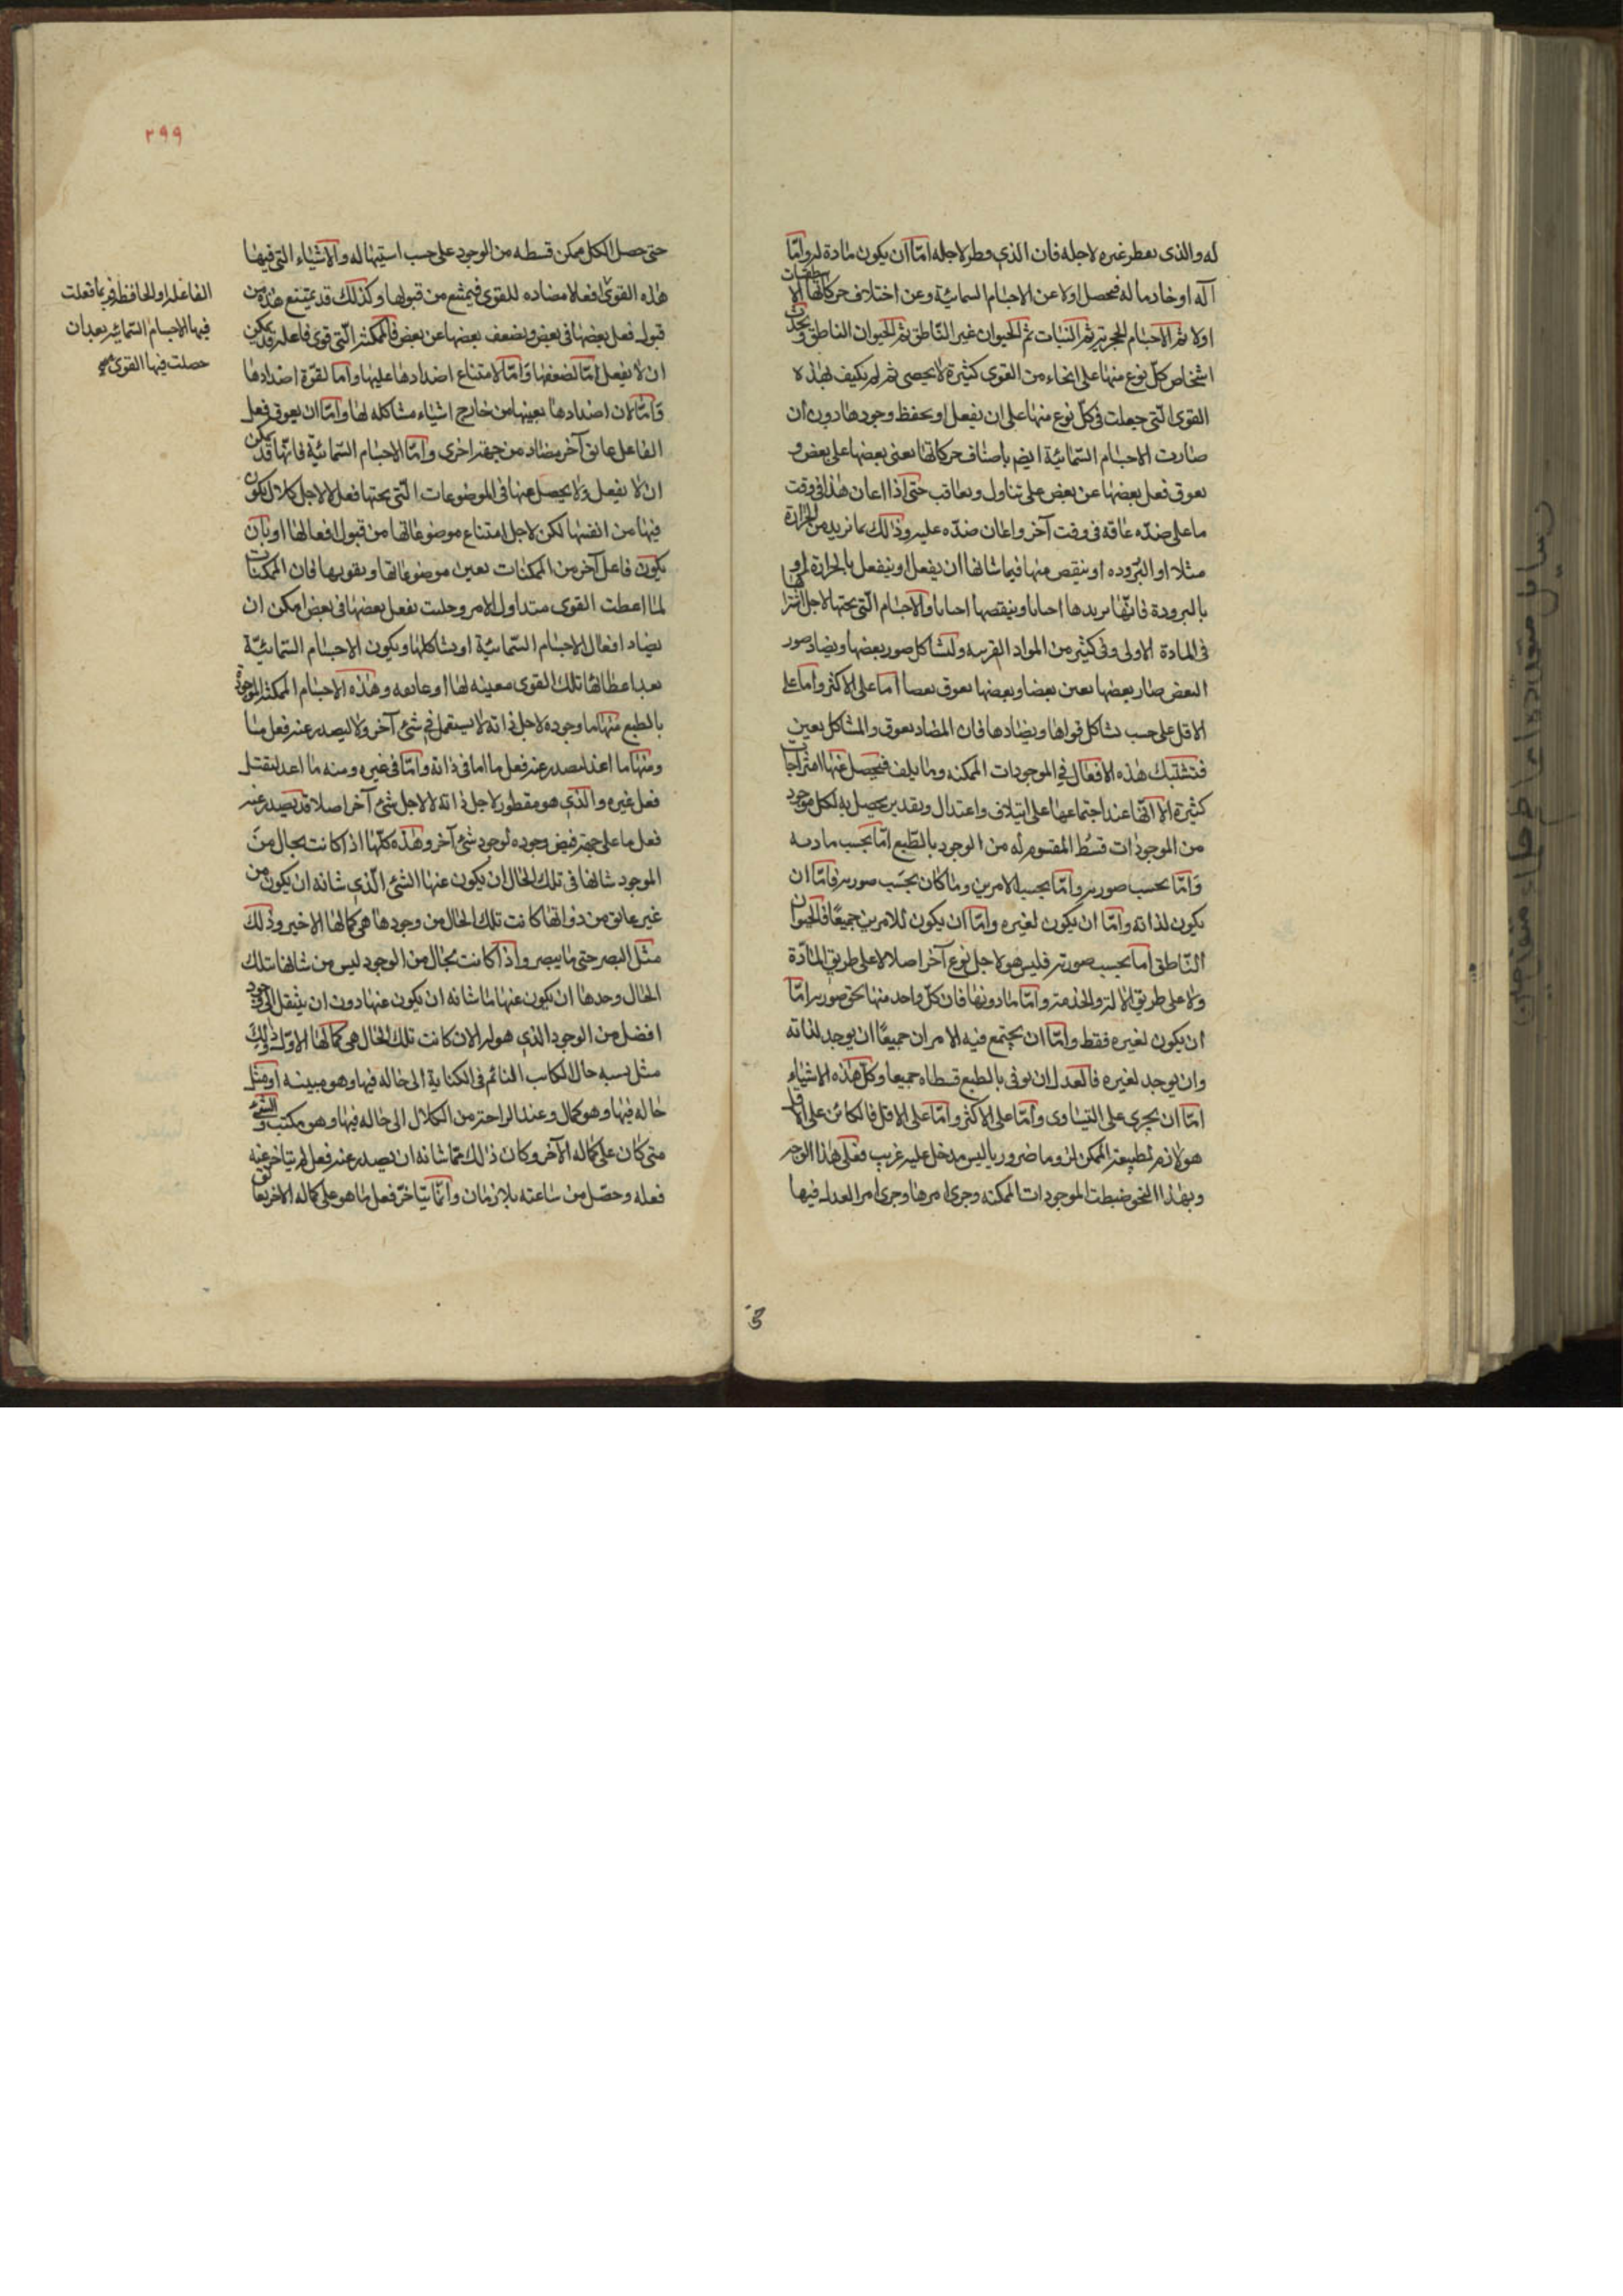 له والذى يفطر غيره لاجله فان الذى فطر لاجله امّا ان يكون مادة له وامّا
آلة او خادما له فيحصل اولا عن الاجسام السمائية وعن اختلاف حركاتها الاسطقسات
اولا ثم الاجسام الحجرية ثم النبات ثم الحيوان غير الناطق ثم الحيوان الناطق ويحدث
اشخاص كلّ نوع منها على انحاء من القوى كثيرة لا يحصى ثم لم يكيف بهذه
القوى الّتى جعلت فى كلّ نوع منها على ان يفعل او يحفظ وجودها دون ان
صارت الاجسام السّمائيّة ايضم باصناف حركاتها يعنى بعضها على بعض و
يعوق فعل بعضها عن بعض على تناول وتعاقب حتى اذا اعان هذا فى وقت
ما على ضدّه عاقه فى وقت آخر واعان ضدّه عليه وذلك بما تزيد من الحرارة
مثلا او البروده او ينقص منها فيما شانها ان يفعل او ينفعل بالحرارة او
بالبرودة فانّها يزيدها احيانا وينقصها احيانا والاجسام الّتى تحتها لاجل اشتراكها
فى المادة الاولى وفى كثير من المواد القريبه ولتشاكل صور بعضها ويضاد صور
البعض صار بعضها يعين بعضا وبعضها يعوق بعضا اما على الاكثر واما على
الاقل على حسب تشاكل قواها ويضادها فان المضاد يعوق والمشاكل يعين
فتشتبك هذه الافعال في الموجودات الممكنه وما يلف فيحصل عنها امتزاجات
كثيرة الا انّها عند اجتماعها على ايتلاف واعتدال وتقدير يحصل به لكل موجود
من الموجودات قسط المقسوم له من الوجود بالطّبع امّا بحسب مادته
وَامّا بحسب صورته وامّا بحسب الامرين وما كان بحسَب صورته فامّا ان
يكون لذاته وامّا ان يكون لغيره وامّا ان يكون للامرين جميعًا فالحيوان
النّاطق اما بحسب صورته فليس هو لاجل نوع آخر اصلا لا على طريق المادّة
ولا على طريق الالة والخدمة وامّا ما دونها فان كلّ واحد منها بحق صورته امّا
ان يكون لغيره فقط وامّا ان يجتمع فيه الامران جميعًا ان يوجد لذاته
وان يوجد لغيره فالعدل ان يوفى بالطبع قسطاه جميعا وكلّ هذه الاشياء
امّا ان يجرى على التساوى وامّا على الاكثر وامّا على الاقل فالكائن على الاقل
هو لازم لطبيعة الممكن لزوما ضروريا ليس مدخل عليه غريب فعلى هذا الوجه
وبهذا النحو ضبطت الموجودات الممكنه وجرى امرها وجرى امر العدل فيها
٢٩٩
حتى حصل لكل ممكن قسطه من الوجود على حسب استيهاله والاشياء التى فيها
هذه القوى افعلا مضاده للقوى فيمتنع من قبولها وكذلك قد يمتنع هذه من
قبول فعل بعضها فى بعض ويضعف بعضها عن بعض فالممكنة الّتى قوى فاعله قد يمكن
ان لا يفعل امّا لضعفها وَامّا لامتناع اضدادها عليها واما لقوّة اضدادها
وَامّا لان اضدادها يعينها من خارج اشياء مشاكله لها وامّا ان يعوق فعل
الفاعل عائق آخر مضاد من جهة اخرى وامّا الاجسام السّمائيّة فانّها قد يمكن
ان لا يفعل ولا يحصل عنها فى الموضوعات الّتى تحتها فعل لا لاجل كلال يكون
فيها من انفسها لكن لاجل امتناع موضوعاتها من قبول افعالها او بان
يكون فاعل آخر من الممكنات يعين موضوعاتها ويقويها فان الممكنات
لما اعطت القوى متداول الامر وخليت يفعل بعضها فى بعض امكن ان
يضاد افعال الاجسام السّمائيّة او يشاكلها ويكون الاجسام السّمائيّة
بعد اعطائها تلك القوى معينه لها او عائقه وهذه الاجسام الممكنة الموجودة
بالطبع منها ما وجوده لاجل ذاته لا يستعمل فى شئ آخر ولا ليصدر عنه فعل ما
ومنها ما اعد ليصدر عنه فعل ما اما فى ذاته وامّا فى غيره ومنه ما اعد ليقبل
فعل غيره والذى هو مفطور لاجل ذاته لا لاجل شئ آخر اصلا قد يصدر عنه
فعل ما على جهة فيض وجوده لوجود شئ آخر وهذه كلّها اذا كانت بحال من
الموجود شانها فى تلك الحال ان يكون عنها الشئ الّذى شانه ان يكون من
غير عائق من ذواتها كانت تلك الحال من وجودها هى كمالها الاخير وذلك
مثل البصر حتى ما يبصر واذا كانت بحال من الوجود ليس من شانها بتلك
الحال وحدها ان يكون عنها ما شانه ان يكون عنها دون ان ينتقل الى وجود
افضل من الوجود الذى هو له الان كانت تلك الحال هى كمالها الاوّل وذلك
مثل نسبه حال الكاتب النائم فى الكتابة الى حاله فيها وهو مبينه او مثل
حاله فيها وهو كمال وعند الراحة من الكلال الى حاله فيها وهو مكتب والشئ
متى كان على كماله الآخر وكان ذلك ممّا شانه ان يصدر عنه فعل لم يتاخر عنه
فعله وحصّل من ساعته بلا زمان وانّما يتاخّر فعل ما هو على كماله الاخر بعائق
الفاعله او الحافظه فربما فعلت
فيها الاجسام السّمائيه بعد ان
حصلت فيها القوى